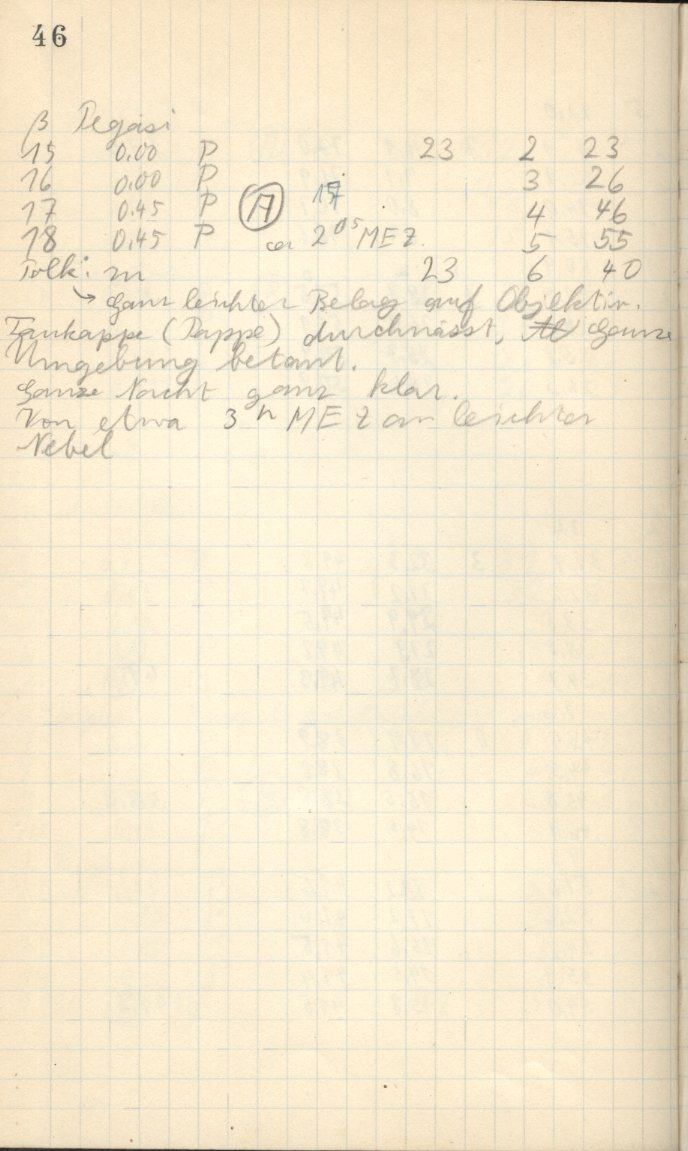 46
β Pegasi
15 0.00 P 23 2 23
16 0.00 P 3 26
17 0.45 P 17 4 46
18 0.45 P ca 2⁰⁵ MEZ. 5 55
Folk: m 23 6 40
→ ganz leichter Belag auf Objektiv.
Taukappe (Pappe) durchnässt, ganze
Umgebung betaut.
Ganze Nacht ganz klar.
Von etwa 3ʰ MEZ an leichter
Nebel